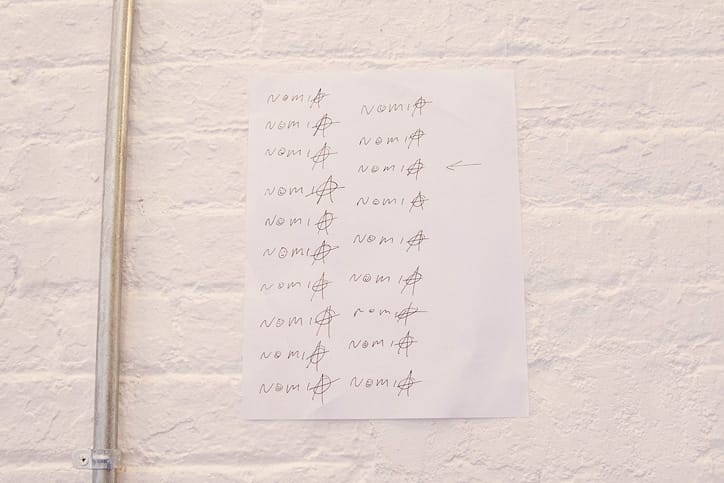 NOMIA
NOMIA
NOMIA
NOMIA
NOMIA
NOMIA
NOMIA
NOMIA
NOMIA
NOMIA
NOMIA
NOMIA
NOMIA ←
NOMIA
NOMIA
NOMIA
NOMIA
NOMIA
NOMIA